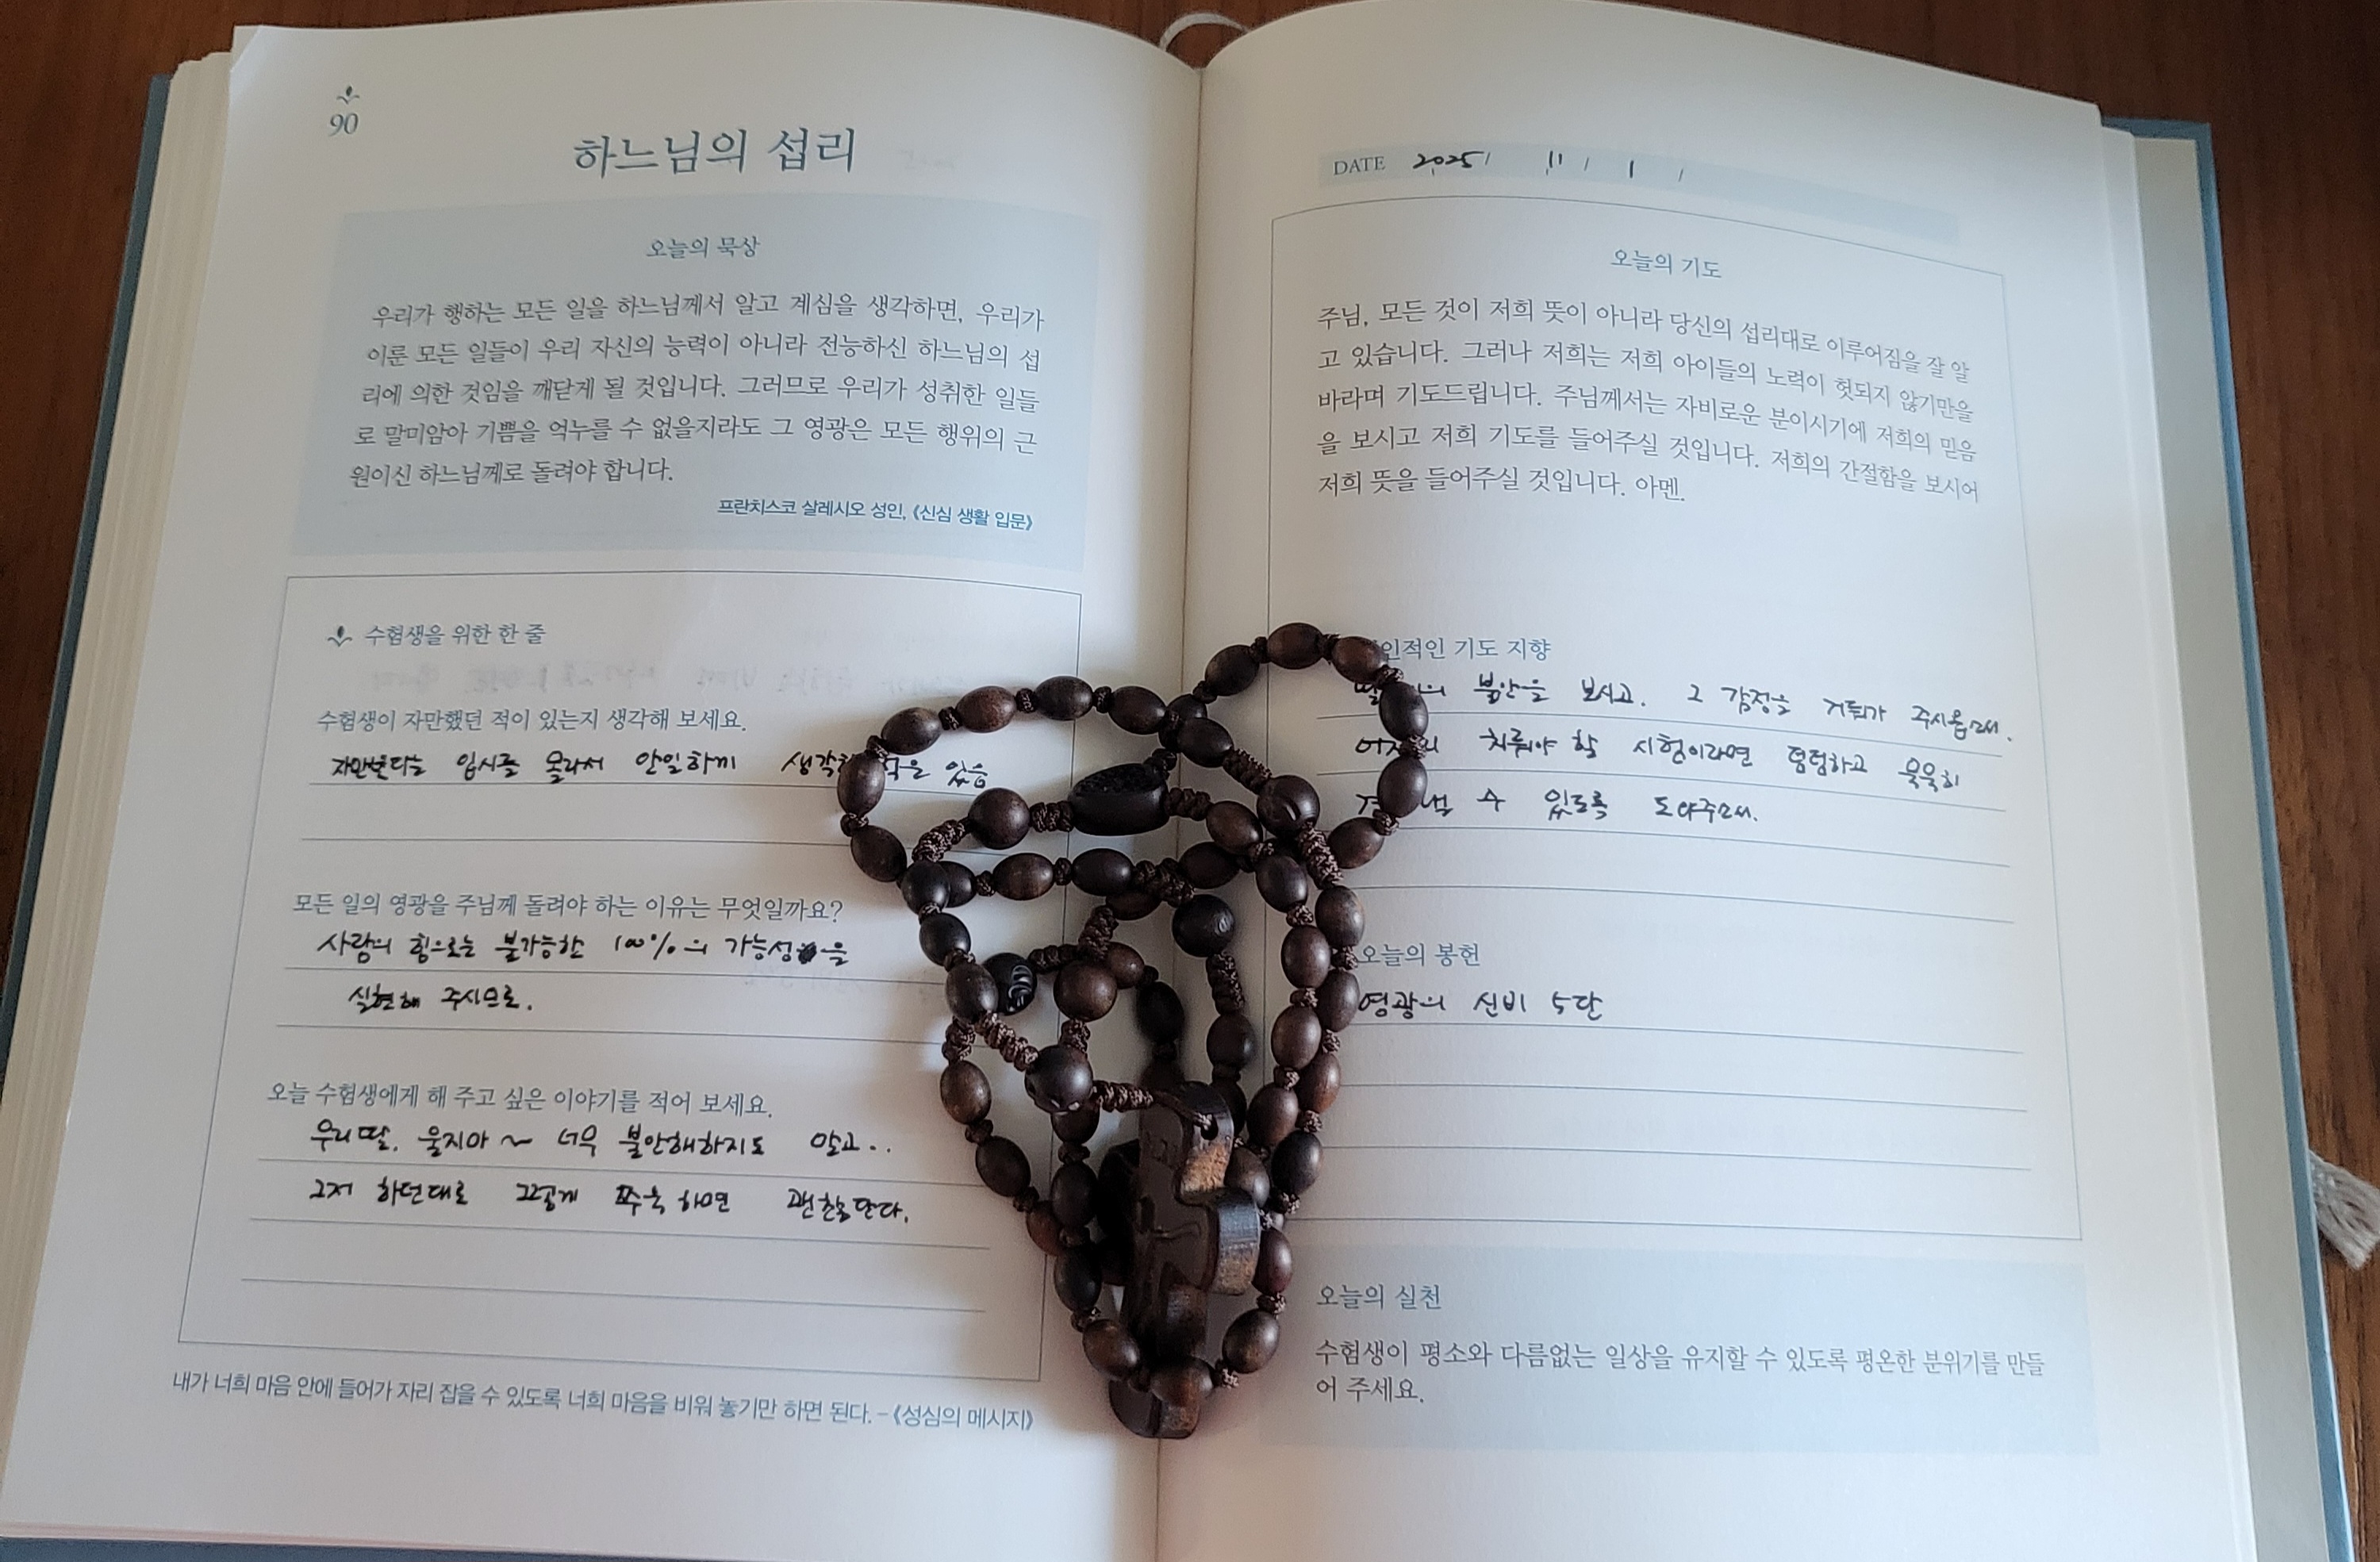 90
하느님의 섭리
오늘의 묵상
우리가 행하는 모든 일을 하느님께서 알고 계심을 생각하면, 우리가
이룬 모든 일들이 우리 자신의 능력이 아니라 전능하신 하느님의 섭
리에 의한 것임을 깨닫게 될 것입니다. 그러므로 우리가 성취한 일들
로 말미암아 기쁨을 억누를 수 없을지라도 그 영광은 모든 행위의 근
원이신 하느님께로 돌려야 합니다.
프란치스코 살레시오 성인, 《신심 생활 입문》
수험생을 위한 한 줄
수험생이 자만했던 적이 있는지 생각해 보세요.
자만보다는 입시를 몰라서 안일하게 적은 있음
모든 일의 영광을 주님께 돌려야 하는 이유는 무엇일까요?
사람의 힘으로는 불가능한 100%의 가능성을
실현해 주시므로.
오늘 수험생에게 해 주고 싶은 이야기를 적어 보세요.
우리 딸. 울지마~ 너무 불안해하지도 말고..
그저 하던대로 그렇게 쭈욱 하면 괜찮을 단다.
내가 너희 마음 안에 들어가 자리 잡을 수 있도록 너희 마음을 비워 놓기만 하면 된다. -《성심의 메시지》
DATE 2025/ 11/ 1 /
오늘의 기도
주님, 모든 것이 저희 뜻이 아니라 당신의 섭리대로 이루어짐을 잘 알
고 있습니다. 그러나 저희는 저희 아이들의 노력이 헛되지 않기만을
바라며 기도드립니다. 주님께서는 자비로운 분이시기에 저희의 믿음
을 보시고 저희 기도를 들어주실 것입니다. 저희의 간절함을 보시어
저희 뜻을 들어주실 것입니다. 아멘.
인적인 기도 지향
불안을 보시고. 그 감정을 거둬가 주시옵소서.
치뤄야 할 시험이라면 덤덤하고 묵묵히
수 있도록 도와주소서.
오늘의 봉헌
영광의 신비 5단
오늘의 실천
수험생이 평소와 다름없는 일상을 유지할 수 있도록 평온한 분위기를 만들
어 주세요.